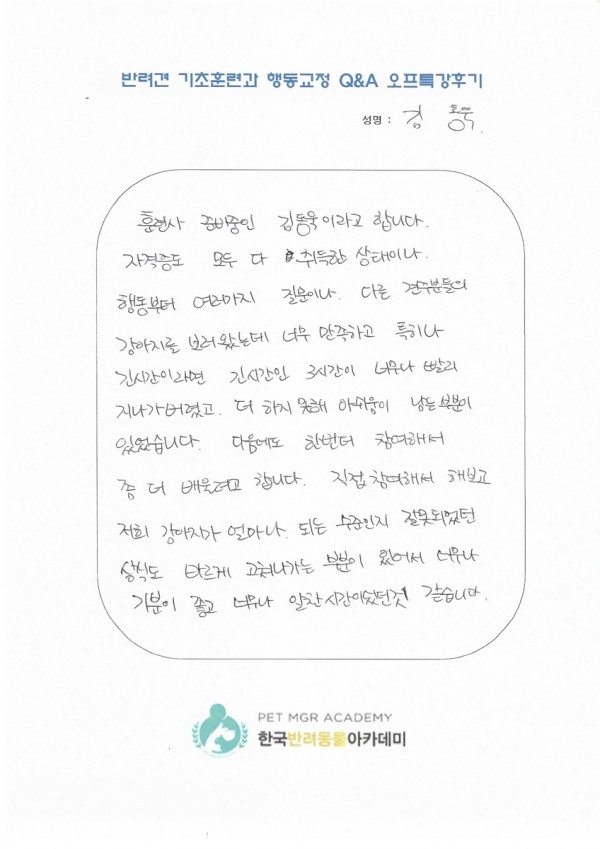 반려견 기초훈련과 행동교정 Q&A 오프특강후기
성명 : 김 동욱.
훈련사 준비중인 김동욱이라고 합니다.
자격증도 모두 다 취득한 상태이나.
행동부터 여러마지 질문이나. 다른 견주분들의
강아지를 보러 왔는데 너무 만족하고 특히나
긴시간이라면 긴시간인 3시간이 너무나 빨리
지나가버렸고. 더 하지 못해 아쉬움이 남는 부분이
있었습니다. 다음에도 한번더 참여해서
좀 더 배우려고 합니다. 직접 참여해서 해보고
저희 강아지가 얼마나. 되는 수준인지 잘못되었던
상식도 바르게 고쳐나가는 부분이 있어서 너무나
기분이 좋고 너무나 알찬시간이었던것 같습니다.
PET MGR ACADEMY
한국반려동물아카데미